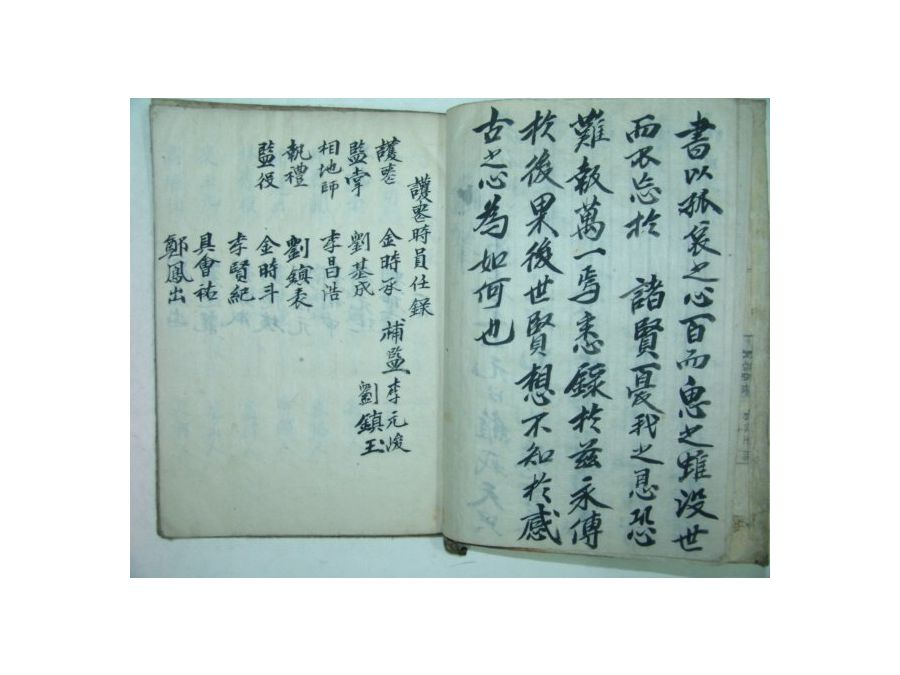 書以孤哀之心百而思之雖沒世
而不忘於 諸賢憂我之恩恐
難報萬一焉悉錄於玆永傳
於後果後世賢想不知於感
古之心為如何也
護喪時員任錄
護喪 金時承 補監 李元浚
劉鎮玉
監掌 劉基成
相地師 李昌浩
執禮 劉鎮表
監役 金時斗
李賢紀
具會祐
鄭鳳出